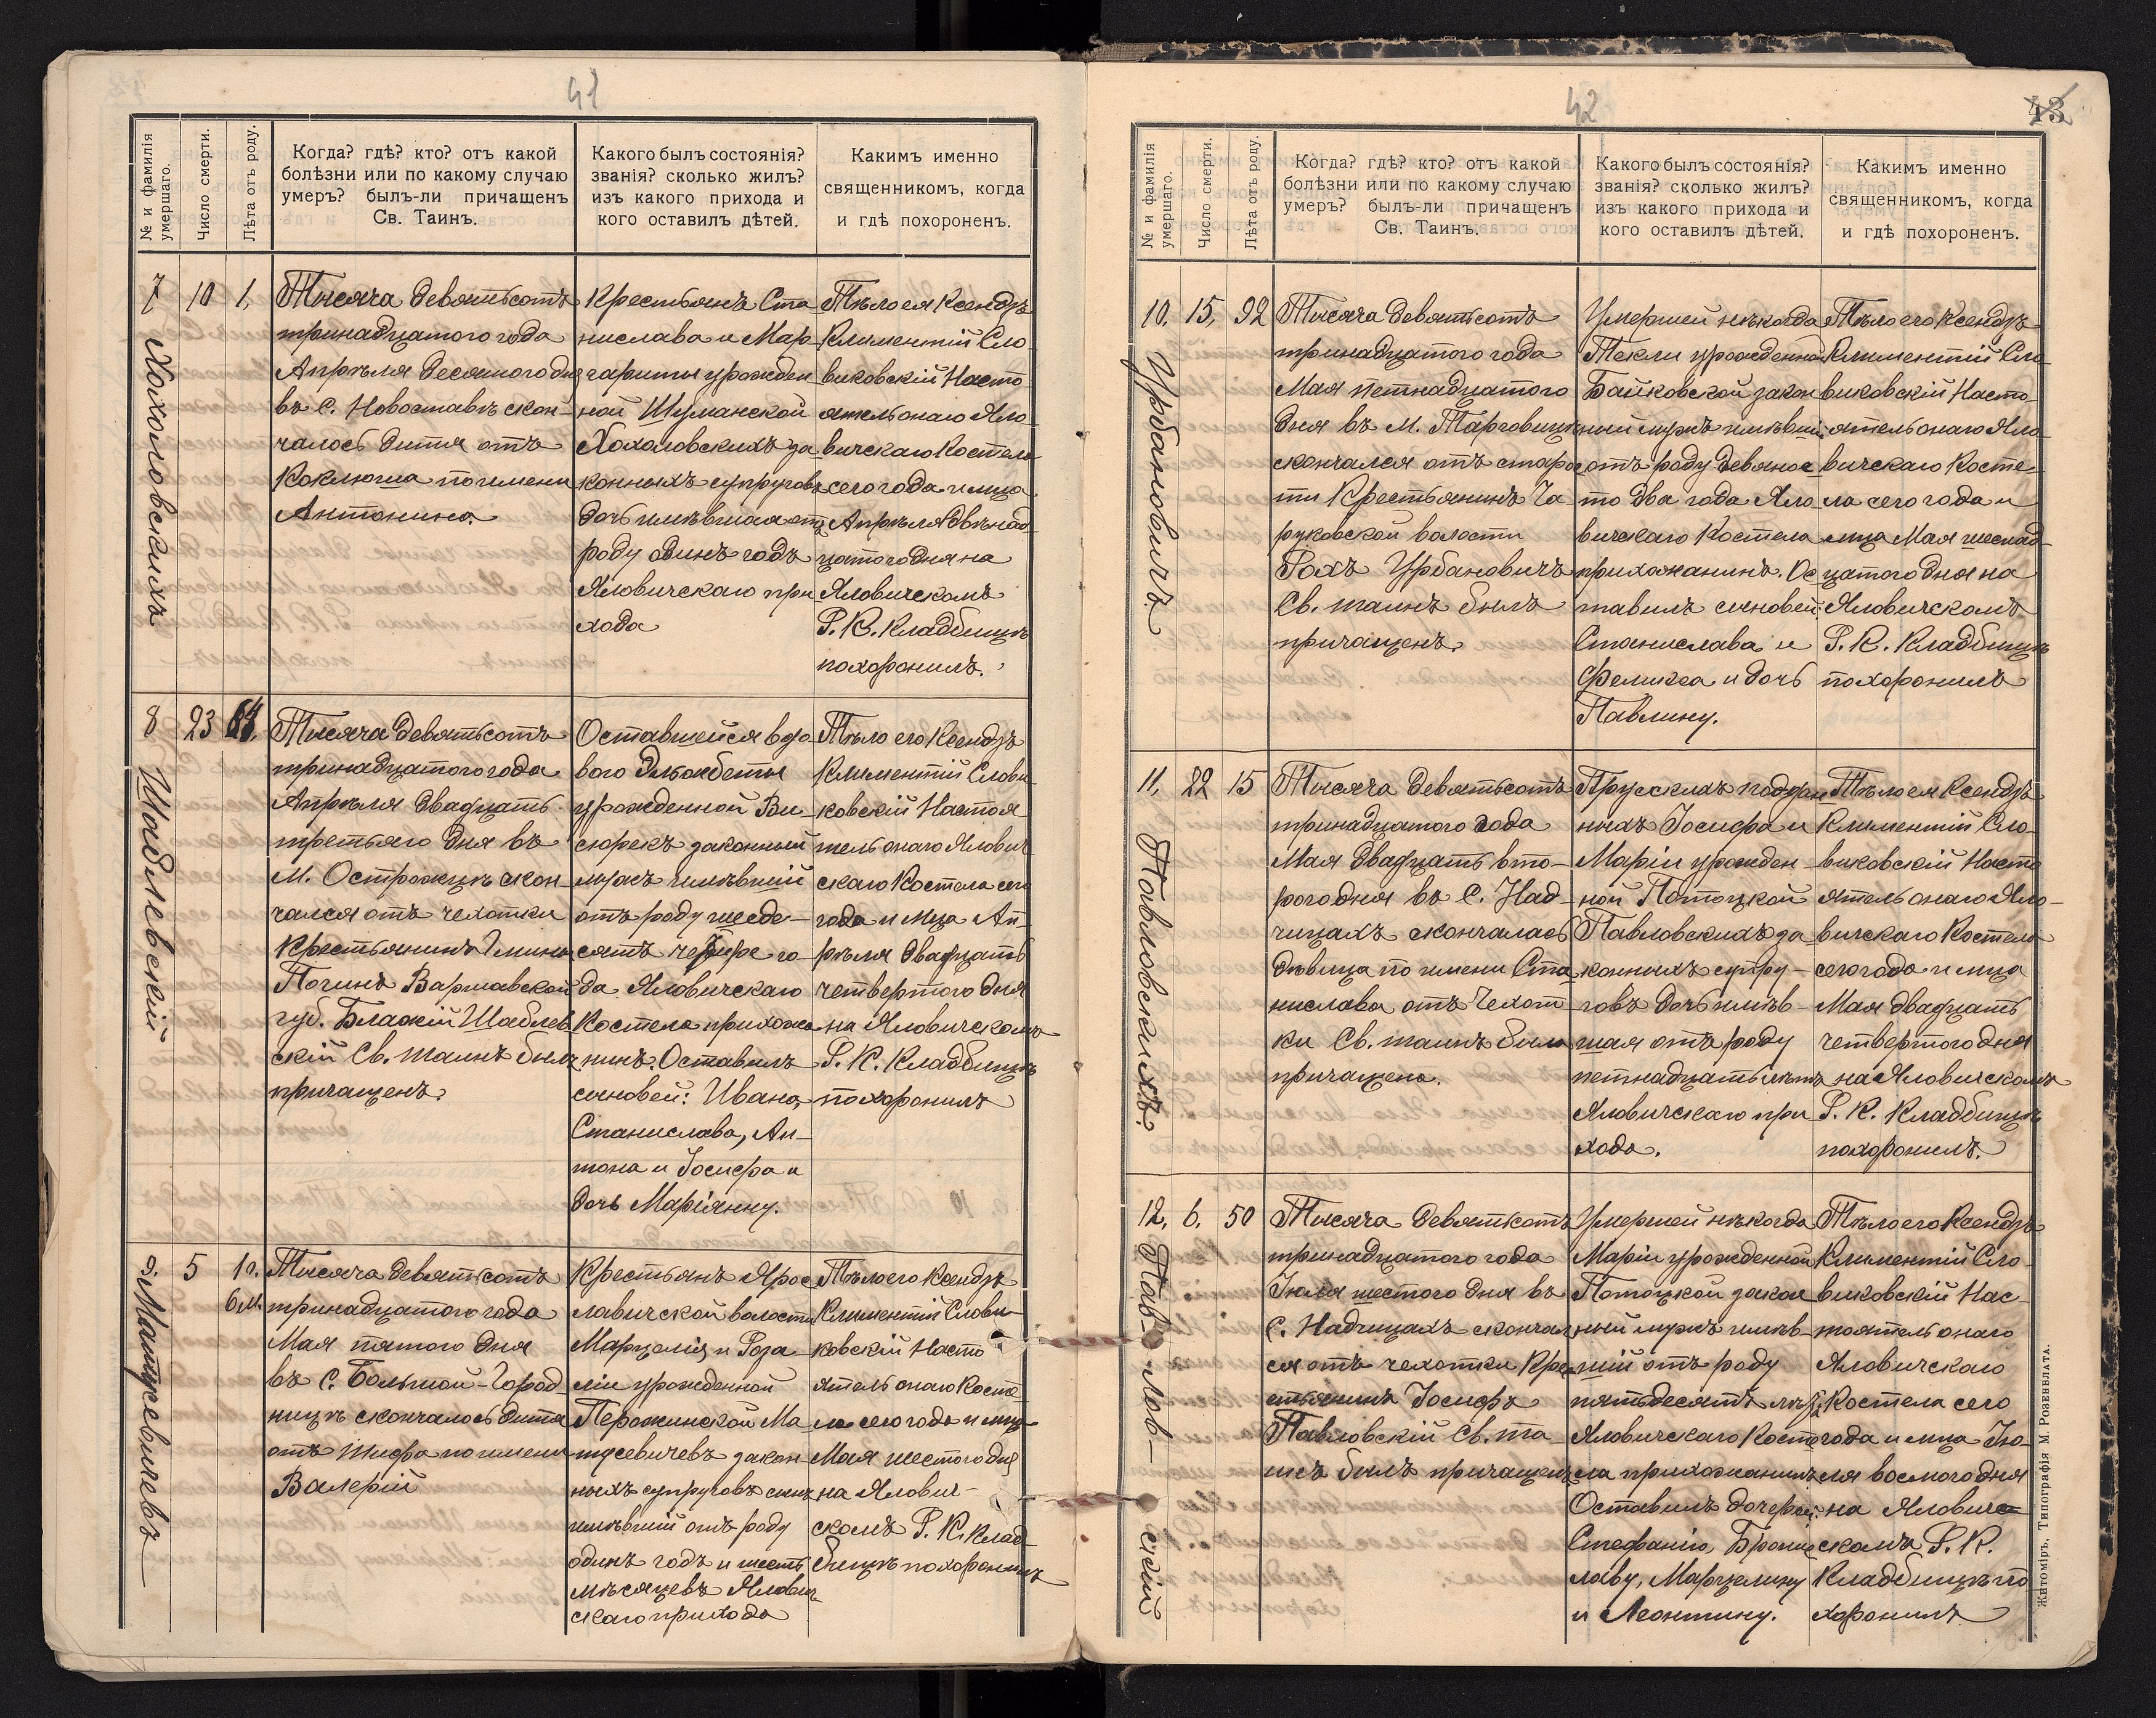 41
№ и фамилія
умершаго.
Число смерти.
Лѣта отъ роду.
Когда? гдѣ? кто? отъ какой
болѣзни или по какому случаю
умеръ? былъ-ли причащенъ
Св. Таинъ.
Какого былъ состоянія?
званія? сколько жилъ?
изъ какого прихода и
кого оставилъ дѣтей.
Какимъ именно
священникомъ, когда
и гдѣ похороненъ.
7
Хохоловскихъ
10
1,
Тысяча девятьсотъ
тринадцатого года
Апрѣля десятого дня
въ С. Новоставѣ скон-
чалось дитя отъ
Коклюша по имени
Антонина.
Крестьянъ Ста
нислава и Мар
гариты урожден
ной Шуманской
Хохоловскихъ за
конныхъ супруговъ
дочь имѣвшая отъ
роду одинъ годъ
Яловичскаго при
хода
Тѣло ея Ксендзъ
Климентій Сло-
виковскій Насто
ятель онаго Яло-
вичскаго Костела
сего года и мца
Апрѣля двѣнад-
цатого дня на
Яловичскомъ
Р. К. Кладбищѣ
похоронилъ.
8
Шадлевскій
23
64.
Тысяча девятьсотъ
тринадцатого года
Апрѣля двадцать
третьяго дня въ
М. Острожцѣ скон-
чался отъ чехотки
Крестьянинъ Гмины
Починъ Варшавской
губ. Блажій Шадлев
скій Св. таинъ былъ
причащенъ.
Оставшейся вдо
вою Эльжбеты
урожденной Ви
сюрекъ законный
мужъ имѣвшій
отъ роду шесде-
сятъ четыре го
да Яловичскаго
Костела прихожа
нинъ. Оставилъ
сыновей: Ивана,
Станислава, Ан-
тона и Іосифа и
дочь Маріянну.
Тѣло его Ксендзъ
Климентій Слови
ковскій Настоя
тель онаго Ялович
скаго Костела сего
года и мца Ап-
рѣля двадцать
четвертого дня
на Яловичскомъ
Р. К. Кладбищѣ
похоронилъ
9.
Матусевичевъ
5
1 г.
6 м.
Тысяча девятьсотъ
тринадцатого года
Мая пятого дня
въ С. Большой-Город
ницѣ скончалось дитя
отъ тифа по имени
Валерій
Крестьянъ Ярос
лавичской волости
Марцелія и Роза
ліи урожденной
Перожинской Ма
тусевичевъ закон
ныхъ супруговъ сынъ
имѣвшій отъ роду
одинъ годъ и шесть
мѣсяцевъ Ялович
скаго прихода
Тѣло его Ксендзъ
Климентій Слови
ковскій Насто
ятель онаго Косте
ла сего года и мца
Мая шестого дня
на Ялович-
скомъ Р. К. Клад-
бищѣ похоронилъ
42
43
№ и фамилія
умершаго.
Число смерти.
Лѣта отъ роду.
Когда? гдѣ? кто? отъ какой
болѣзни или по какому случаю
умеръ? былъ-ли причащенъ
Св. Таинъ.
Какого былъ состоянія?
званія? сколько жилъ?
изъ какого прихода и
кого оставилъ дѣтей.
Какимъ именно
священникомъ, когда
и гдѣ похороненъ.
10.
Урбановичъ
15,
92
Тысяча девятьсотъ
тринадцатого года
Мая петнадцатого
дня въ М. Торговицѣ
скончался отъ старос
ти Крестьянинъ Ча
руковской волости
Рохъ Урбановичъ
Св. таинъ былъ
причащенъ.
Умершей нѣкогда
Текли урожденной
Байковской закон
ный мужъ имѣвшій
отъ роду девянос
то два года Яло-
вичскаго Костела
прихожанинъ. Ос
тавилъ сыновей:
Станислава и
Феликса и дочь
Павлину.
Тѣло его Ксендзъ
Климентій Сло-
виковскій Насто-
ятель онаго Яло-
вичскаго Косте-
ла сего года и
мца Мая шеснад-
цатого дня на
Яловичскомъ
Р. К. Кладбищѣ
похоронилъ
11.
Павловскихъ.
22
15
Тысяча девятьсотъ
тринадцатого года
Мая двадцать вто-
рого дня въ С. Над-
чицахъ скончалась
дѣвица по имени Ста
нислава отъ Чехот
ки Св. таинъ была
причащена.
Прусскихъ поддан
ныхъ Іосифа и
Маріи урожден-
ной Потоцкой
Павловскихъ за
конныхъ супру-
говъ дочь имѣв-
шая отъ роду
петнадцать лѣтъ
Яловичскаго при
хода.
Тѣло ея Ксендзъ
Климентій Сло-
виковскій Насто
ятель онаго Яло-
вичскаго Костела
сего года и мца
Мая двадцать
четвертого дня
на Яловичскомъ
Р. К. Кладбищѣ
похоронилъ.
12.
Пав-лов-скій
6.
50
Тысяча девятьсотъ
тринадцатого года
Іюля шестого дня въ
С. Надчицахъ скончал
ся отъ чехотки Кре
стьянинъ Іосифъ
Павловскій Св. та-
инъ былъ причащенъ
Умершей нѣкогда
Маріи урожденной
Потоцкой закон
ный мужъ имѣв-
шій отъ роду
пятьдесятъ лѣтъ
Яловичскаго Косте
ла прихожанинъ
Оставилъ дочерей:
Стефанію, Бронис
лаву, Марцелину
и Леонтину.
Тѣло его Ксендзъ
Климентій Сло
виковскій Нас-
тоятель онаго
Яловичскаго
Костела сего
года и мца Ію-
ля восмого дня
на Ялович-
скомъ Р. К.
Кладбищѣ по
хоронилъ
Житоміръ, Типографія М. Розенблата.